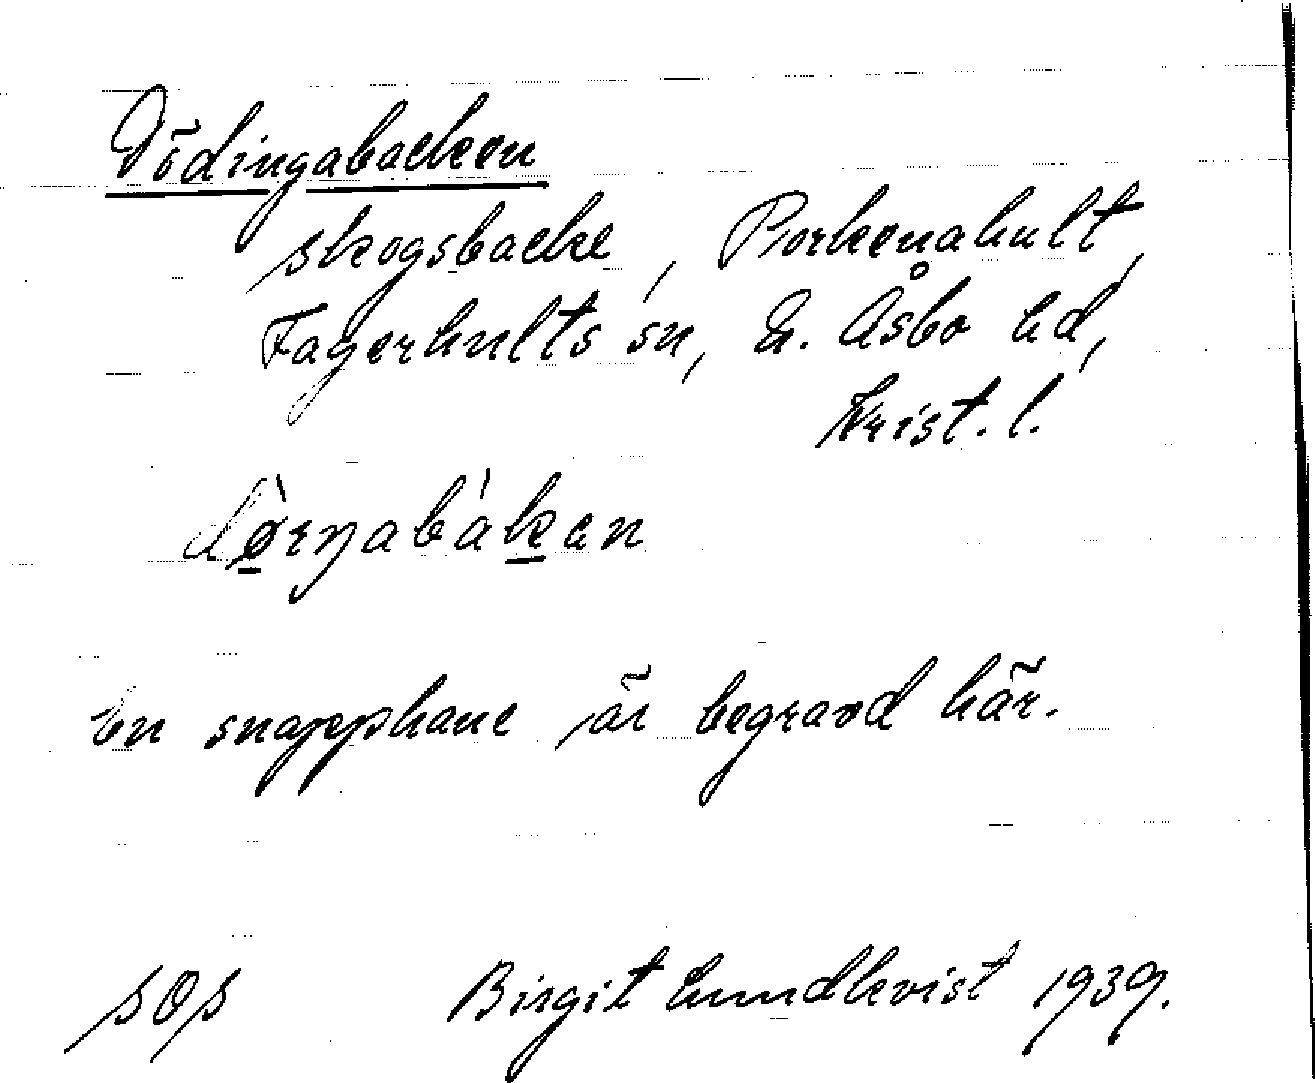 Dödingabacken
skogsbacke, Porkenahult,
Fagerhults sn, N. Åsbo hd,
Krist. l.
En snapphane är begravd här.
sOs Birgit Lundkvist 1939.